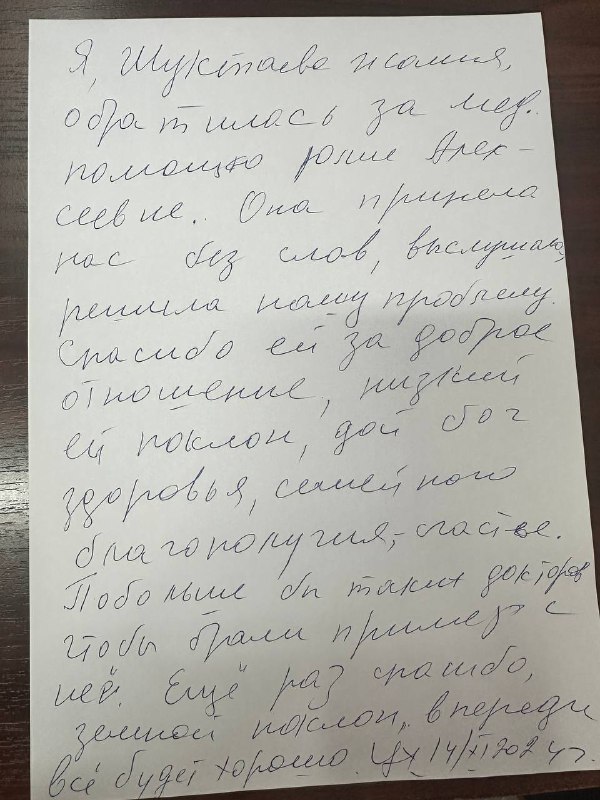 Я, Шуктаева
обратилась за мед.
помощью Юлие Алек-
сеевне. Она приняла
нас без слов, выслушала,
решила нашу проблему.
Спасибо ей за доброе
отношение, низкий
ей поклон, дай бог
здоровья, семейного
благополучия, счастье.
Побольше бы таких докторов
чтобы брали пример с
неё. Ещё раз спасибо,
земной поклон, впереди
всё будет хорошо. 14/XI 2024г.